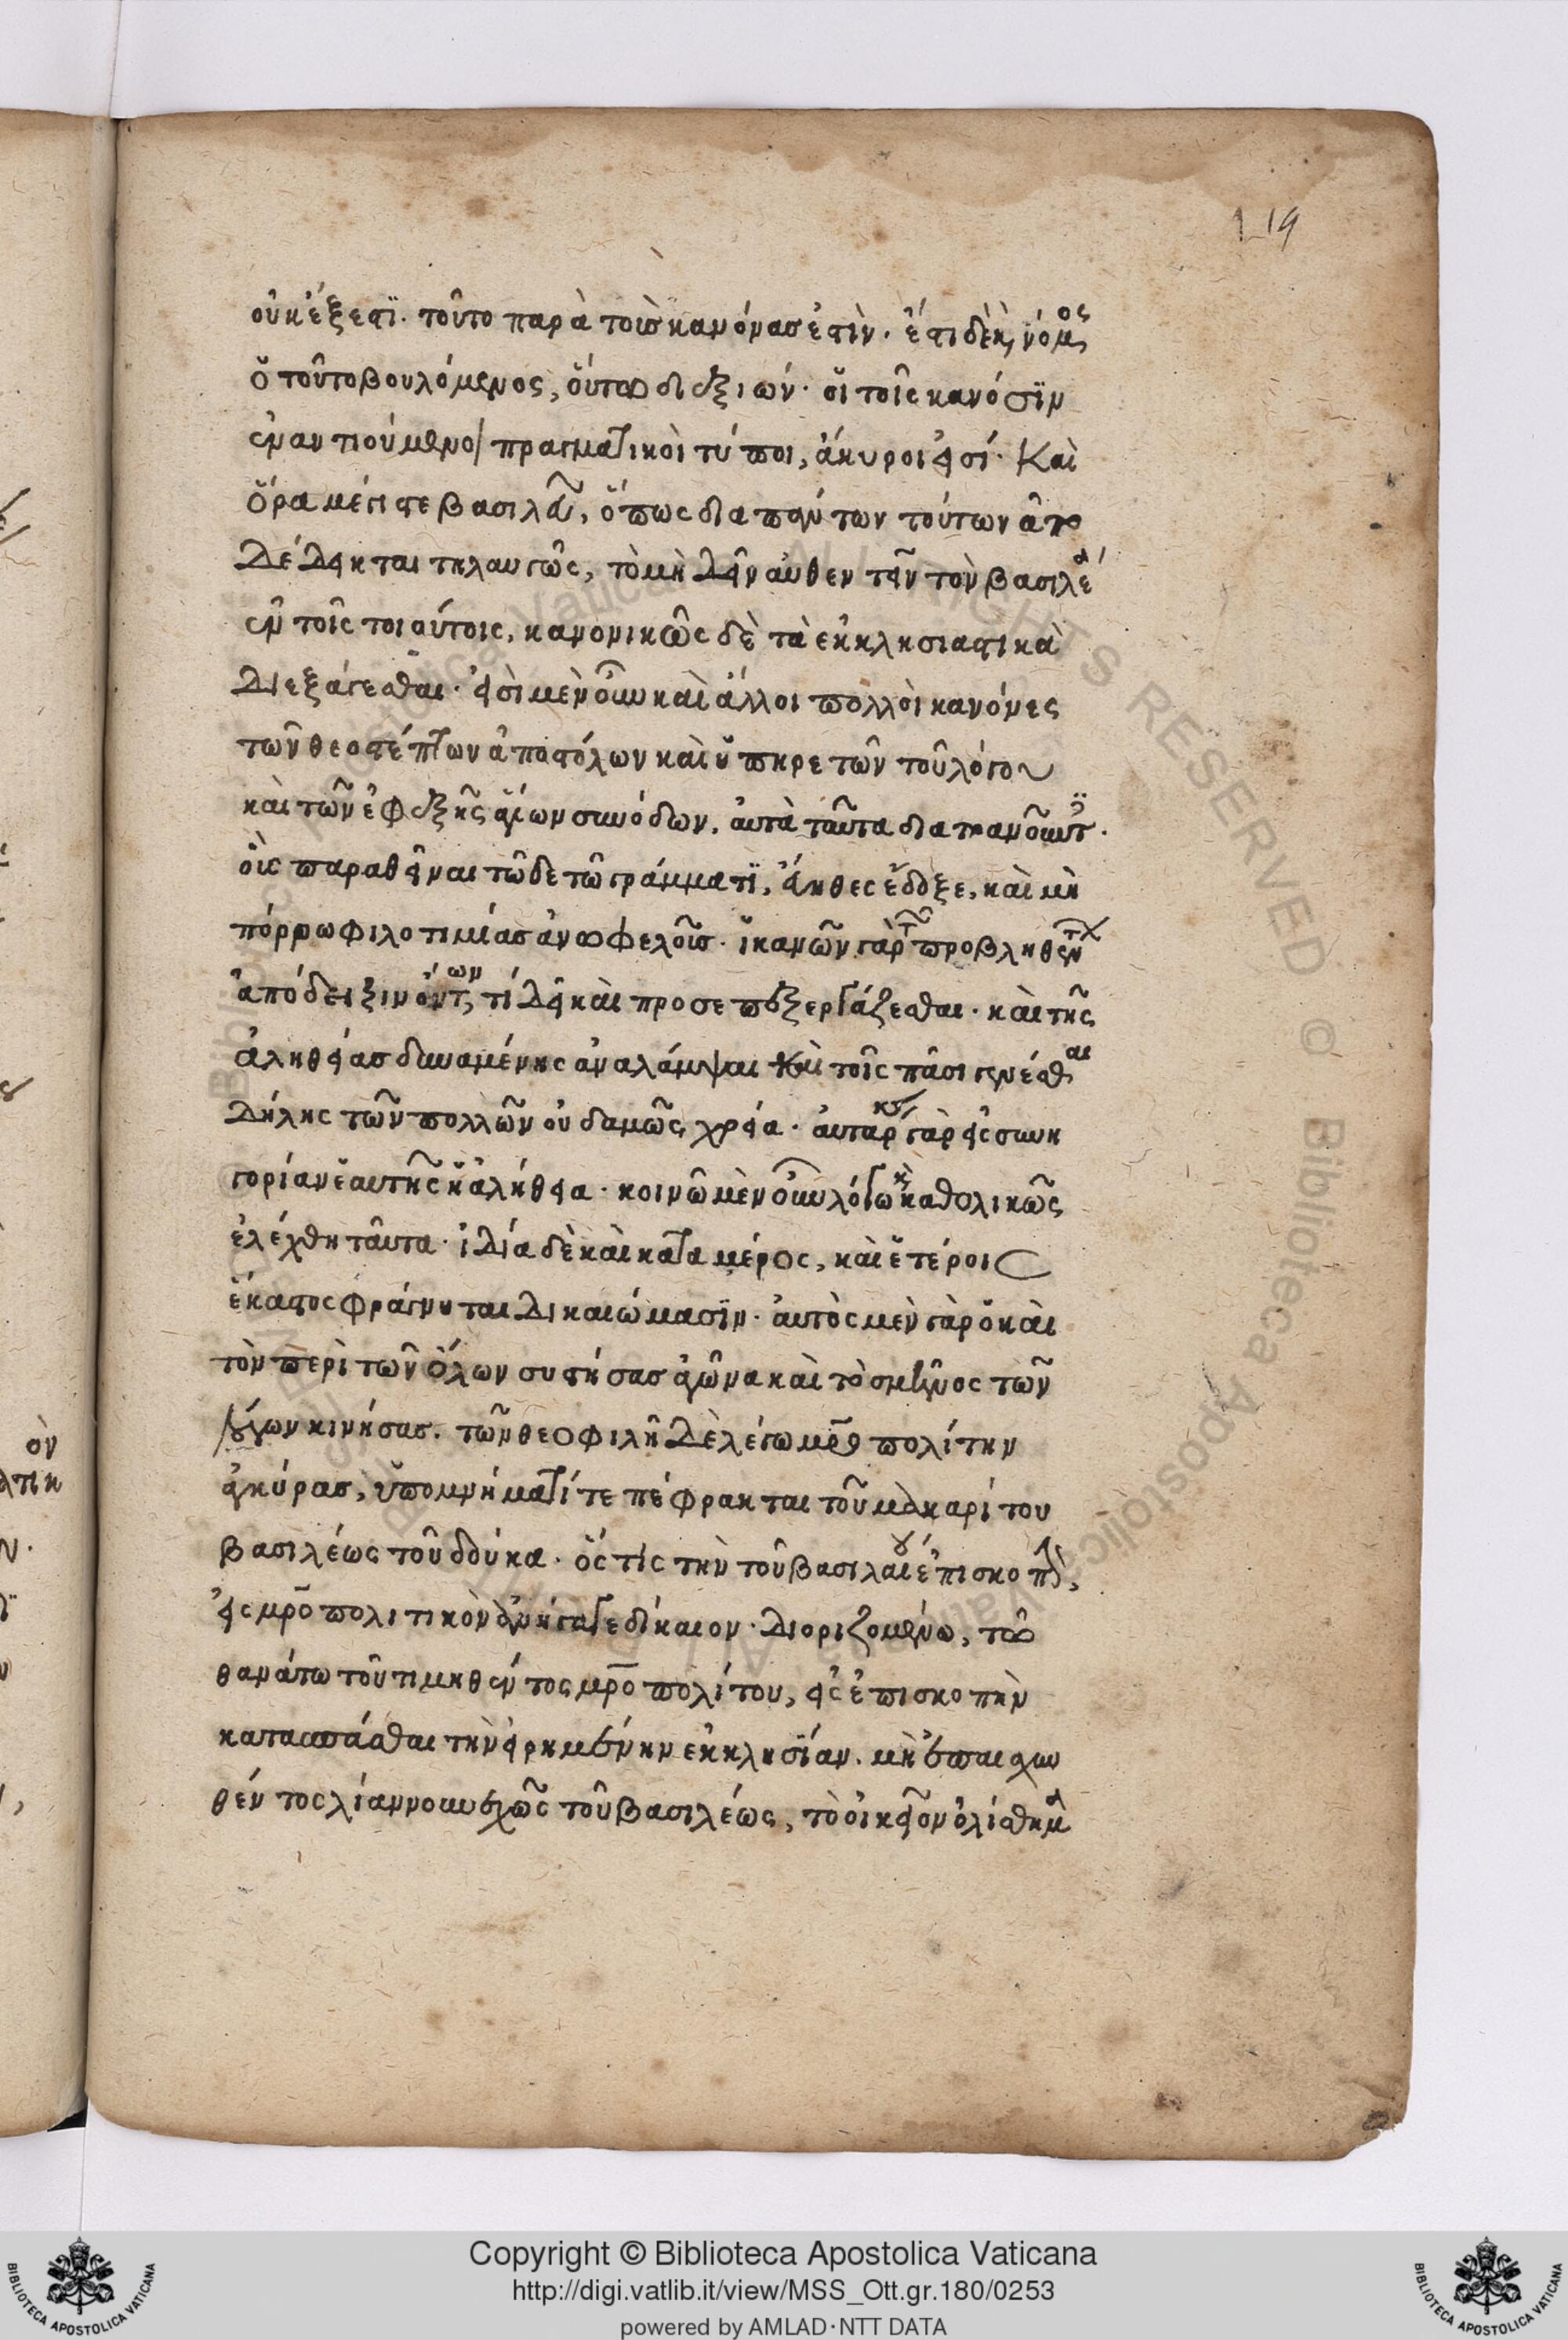 119
οὐκ ἔξεστϊ. τοῦτο παρὰ τοὺς κανόνας ἐστὶν. ἔστι δὲ κ νόμος
ὁ τοῦτο βουλόμενος, οὕτω διεξιών. οἱ τοῖς κανόσϊν
ἐναντιούμενοι πραγματικοὶ τύποι, ἄκυροι εἰσί. Καὶ
ὅρα μέγιστε βασιλεῦ, ὅπως διὰ πάντων τούτων ἀπο
δέδεικται τηλαυγῶς, τὸ μὴ δεῖν αὐθεντεῖν τὸν βασιλέα
ἐν τοῖς τοιούτοις, κανονικῶς δὲ τὰ ἐκκλησιαστικὰ
διεξάγεσθαι. εἰσὶ μὲν οὖν καὶ ἄλλοι πολλοὶ κανόνες
τῶν θεοστέπτων ἀποστόλων καὶ ὑπηρετῶν τοῦ λόγου
καὶ τῶν ἐφεξῆς ἁγίων συνόδων, αὐτὰ ταῦτα διατρανοῦντες.
οὓς παραθεῖναι τῶδε τῶ γράμματϊ, ἄηθες ἔδοξε, καὶ μὴ
πόρρω φιλοτιμίας ἀνωφελοῦς. ἱκανῶν γὰρ τῶν προβληθέντων
ἀπόδειξιν ὄντων, τί δεῖ καὶ προσεπεξεργάζεσθαι. καὶ τῆς
ἀληθείας δυναμένης ἀναλάμψαι καὶ τοῖς πᾶσι γενέσθαι
δήλης τῶν πολλῶν οὐδαμῶς χρεία. αὐταρκεῖ γὰρ εἰς συνη
γορίαν ἑαυτῆς ἡ ἀλήθεια. κοινῶ μὲν οὖν λόγω κ καθολικῶς
ἐλέχθη ταῦτα. ἰδία δὲ καὶ κατὰ μέρος, καὶ ἑτέροις
ἕκαστος φράγνυται δικαιώμασϊν. αὐτὸς μὲν γὰρ ὁ καὶ
τὸν περὶ τῶν ὅλων συστήσας ἀγῶνα καὶ τὸ σμῆνος τῶν
λόγων κινήσας. τῶν θεοφιλῆ δὲ λέγω μρο πολίτην
ἀγκύρας, ὑπομνήματί τε πέφρακται τοῦ μακαρίτου
βασιλέως τοῦ δούκα. ὅς τίς τὴν τοῦ βασιλαίου ἐπισκοπὴν,
εἰς μρο πολιτικὸν ἀνήγαγε δίκαιον. διοριζομένω, τῶ
θανάτω τοῦ τιμηθέντος μρο πολίτου, εἰς ἐπισκοπὴν
κατασπᾶσθαι τὴν εἰρημένην ἐκκλησϊαν. μὴ
θέντος λίαν νουνεχῶς τοῦ βασιλέως, τὸ οἰκεῖον ὀλίσθημα
Copyright © Biblioteca Apostolica Vaticana
http://digi.vatlib.it/view/MSS_Ott.gr.180/0253
powered by AMLAD·NTT DATA